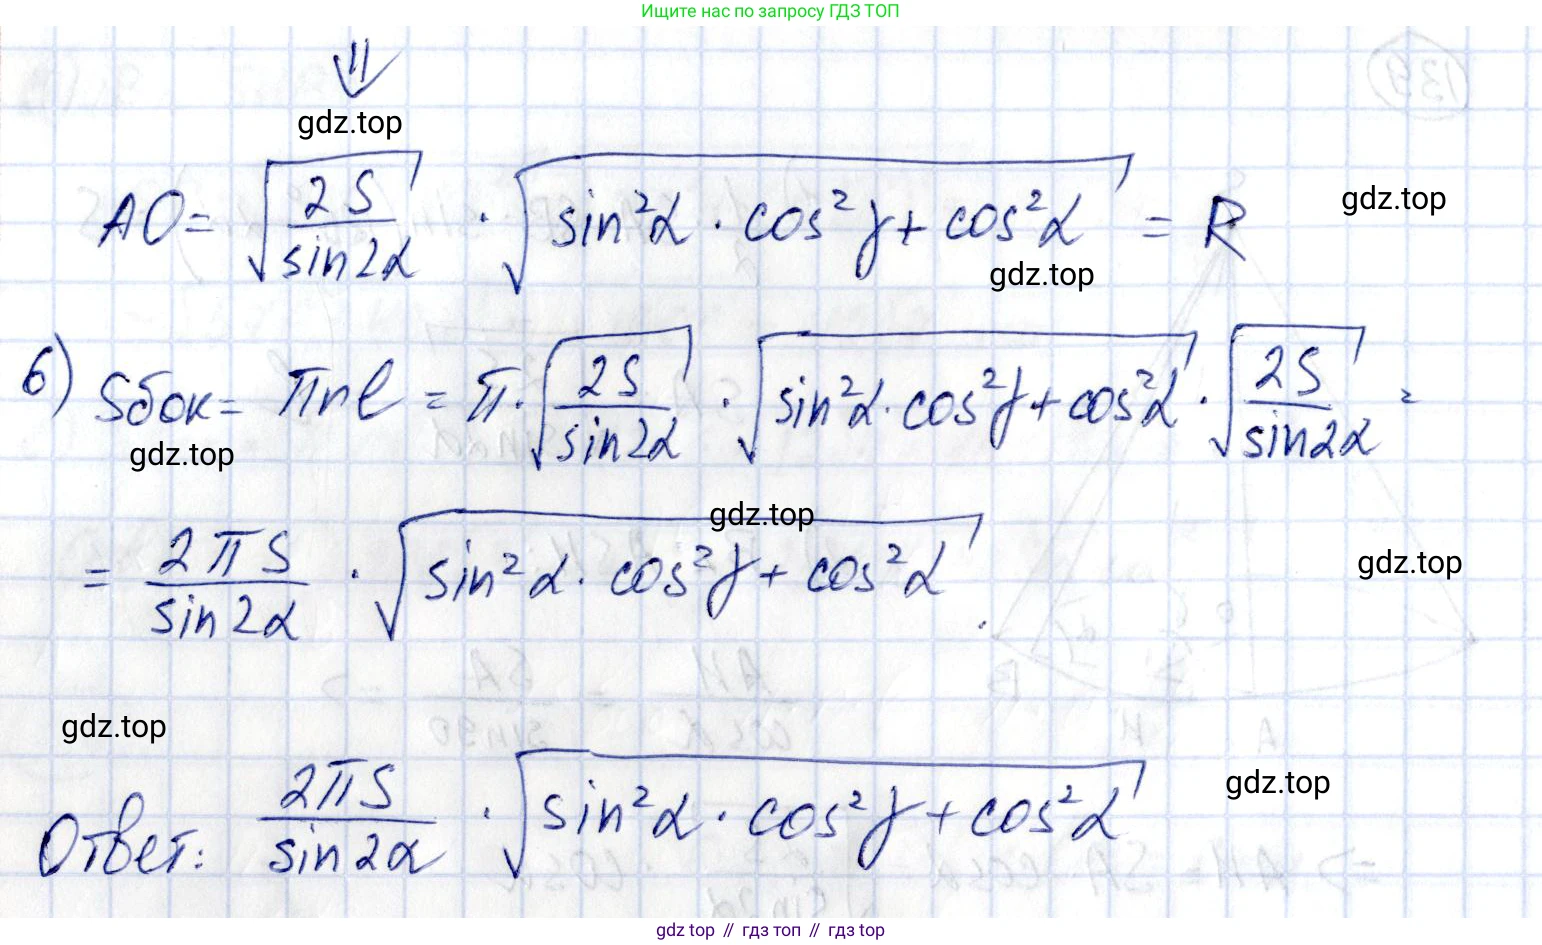 Ищите нас по запросу ГДЗ ТОП
⇓
gdz.top
AO = √(2S/sin2α) · √(sin²α · cos²γ + cos²α) = R
gdz.top
gdz.top
6) Sбок = πrl = π · √(2S/sin2α) · √(sin²α · cos²γ + cos²α) · √(2S/sin2α) =
gdz.top
gdz.top
= 2πS/sin2α · √(sin²α · cos²γ + cos²α).
gdz.top
gdz.top
gdz.top
Ответ: 2πS/sin2α · √(sin²α · cos²γ + cos²α)
gdz top // гдз топ // гдз top